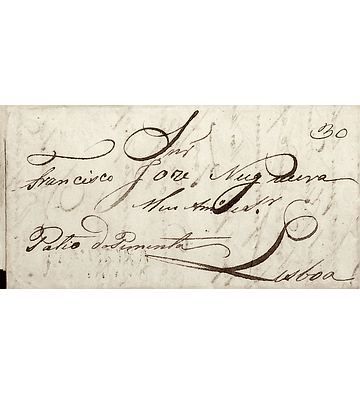 30
Snr
Francisco Joze Nugueira
Meu Am.o e Sr.
Patio do Pimenta
Lisboa